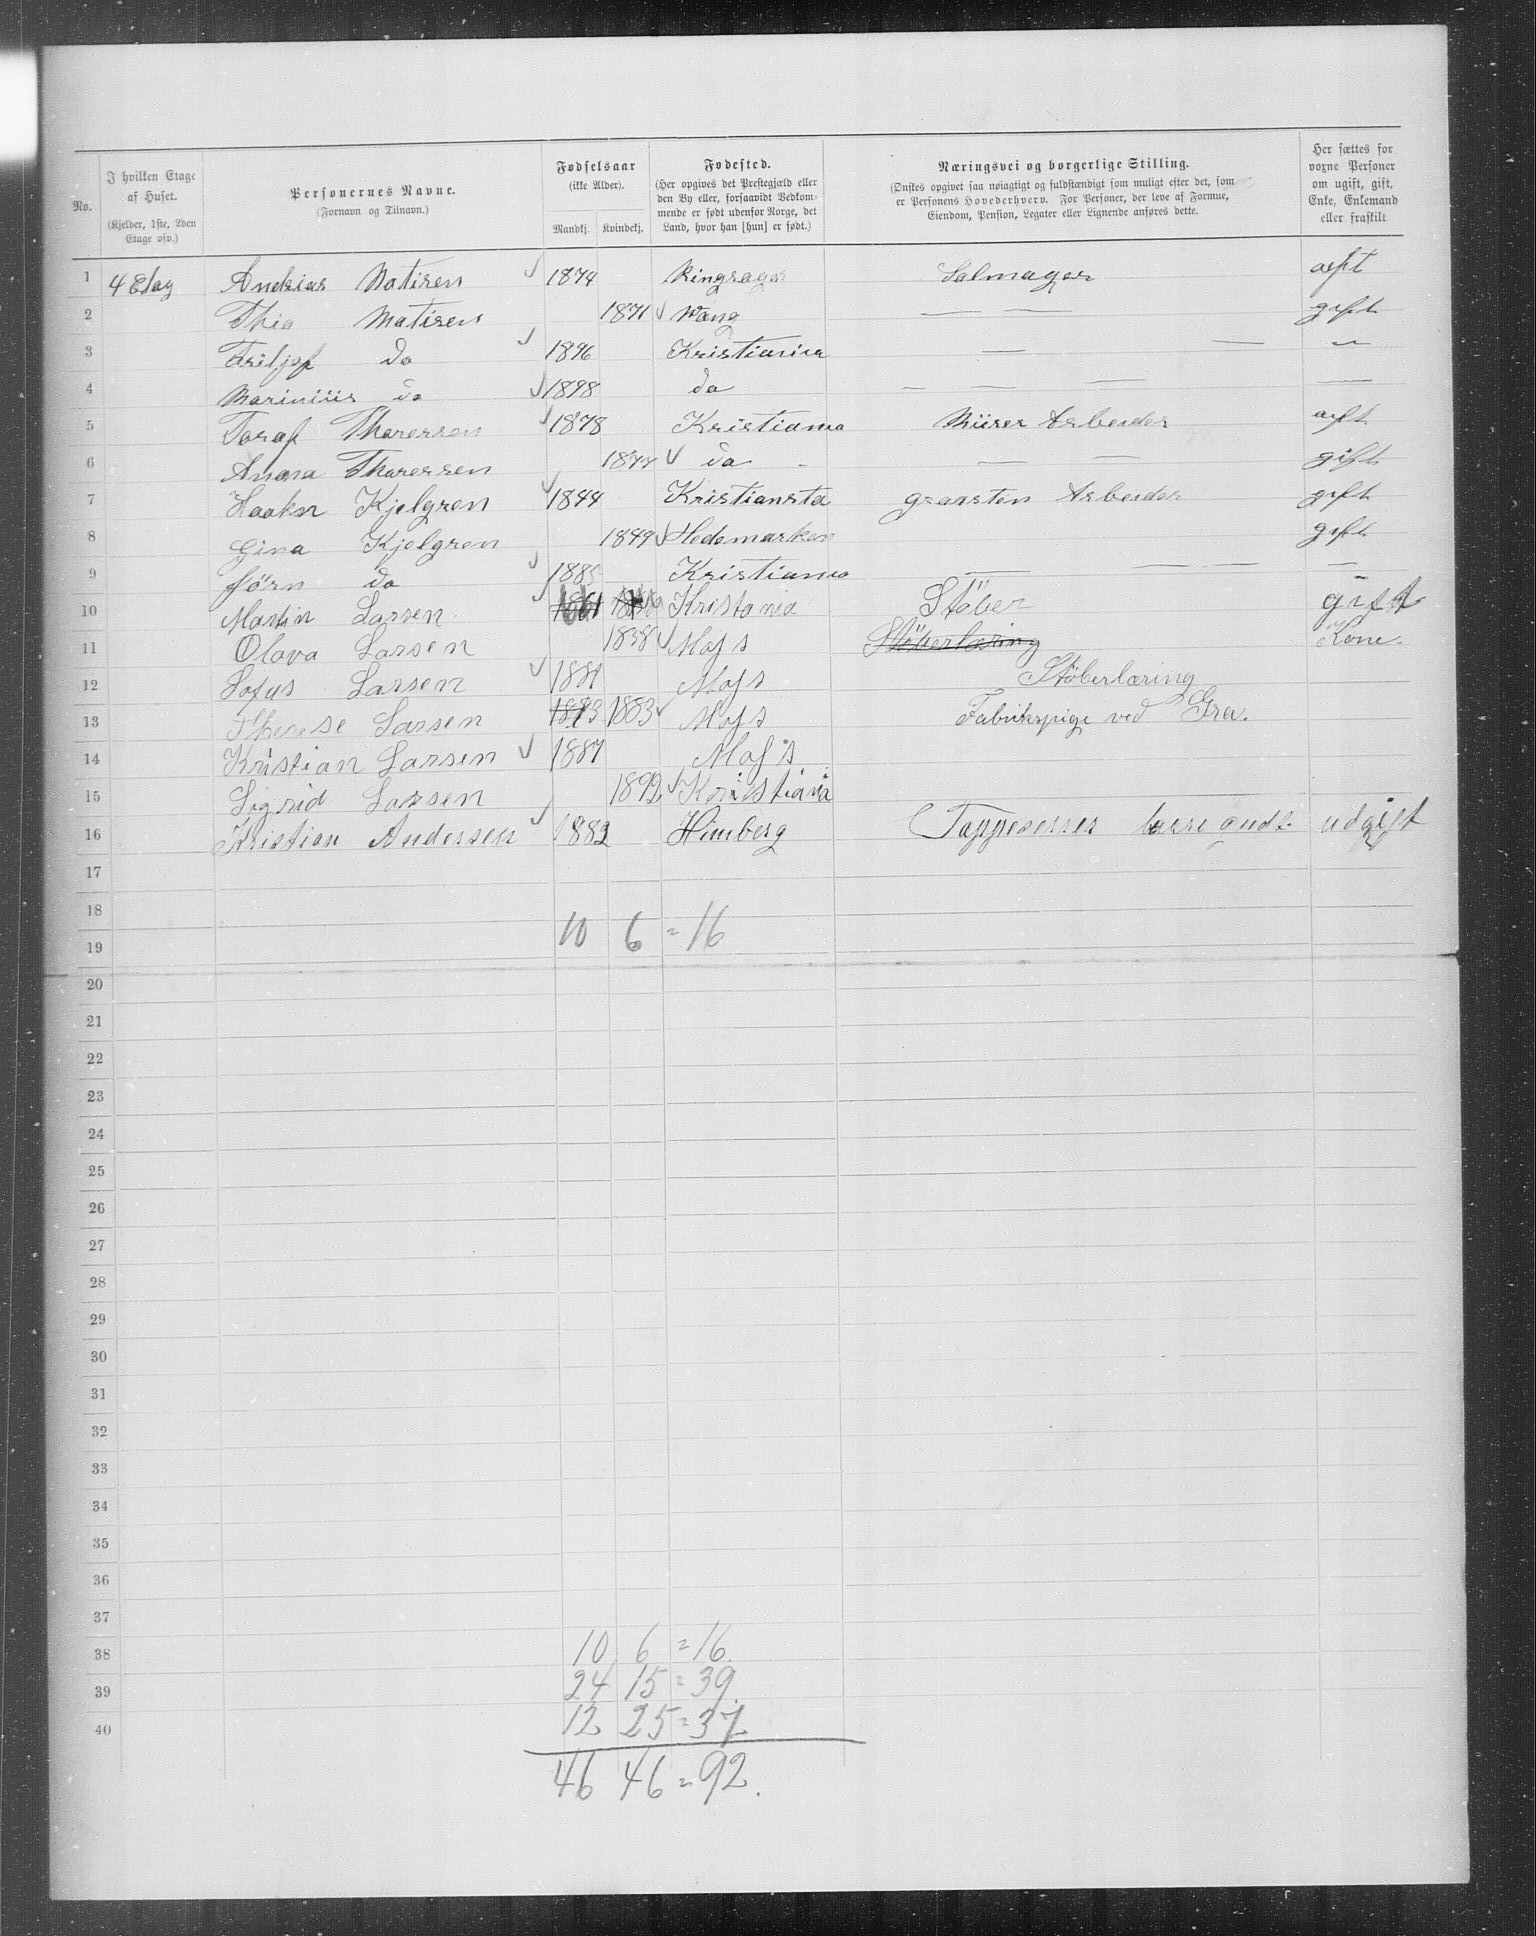 No. | I hvilken Etage af Huset. (Kjelder, 1ste, 2den Etage osv.) | Personernes Navne. (Fornavn og Tilnavn.) | Fødselsaar (ikke Alder). Mandkj. | Kvindekj. | Fødested. (Her opgives det Præstegjæld eller den By eller, forsaavidt Vedkommende er født udenfor Norge, det Land, hvor han [hun] er født.) | Næringsvei og borgerlige Stilling. (Ønskes opgivet saa nøiagtigt og fuldstændigt som muligt efter det, som er Personens Hovederhverv. For Personer, der leve af Formue, Eiendom, Pension, Legater eller Lignende anføres dette. | Her sættes for voxne Personer om ugift, gift, Enke, Enkemand eller fraskilt.
1 4 Etag Andrias Matisen 1874 Ringsager Salmager
2 Thia Matisen 1871 Wang — — gift
3 do 1896 Kristiania — — —
4 Mariniüs do 1898 do — — — —
5 Toraf Thoresen 1878 Kristiania Mürer Arbeider
6 Anna Thoresen do — — gift
7 Haakn Kjelgren 1844 Kristiansta Arbeider gift
8 Gina Kjelgren 1849 Hedemarken gift
9 Jørn do 1885 Kristiania — — — — —
10 Martin Larsen 1861 Kristania Støber gift
11 Olava Larsen 1858 Mojs Støberlæring Kone
12 Sofus Larsen 1881 Mojs Støberlæring
13 Therese Larsen 1873 1883 Mojs Fabrikspige ved Gra.
14 Kristian Larsen 1887 Mojs
15 Sigrid Larsen 1892 Kristiania
16 Kristian Andersen 1882 Himberg udgift
17
18
10 6 = 16
19
20
21
22
23
24
25
26
27
28
29
30
31
32
33
34
35
36
37
38 10 6 = 16
39 24 15 = 39
40 12 25 = 37
46 46 = 92.